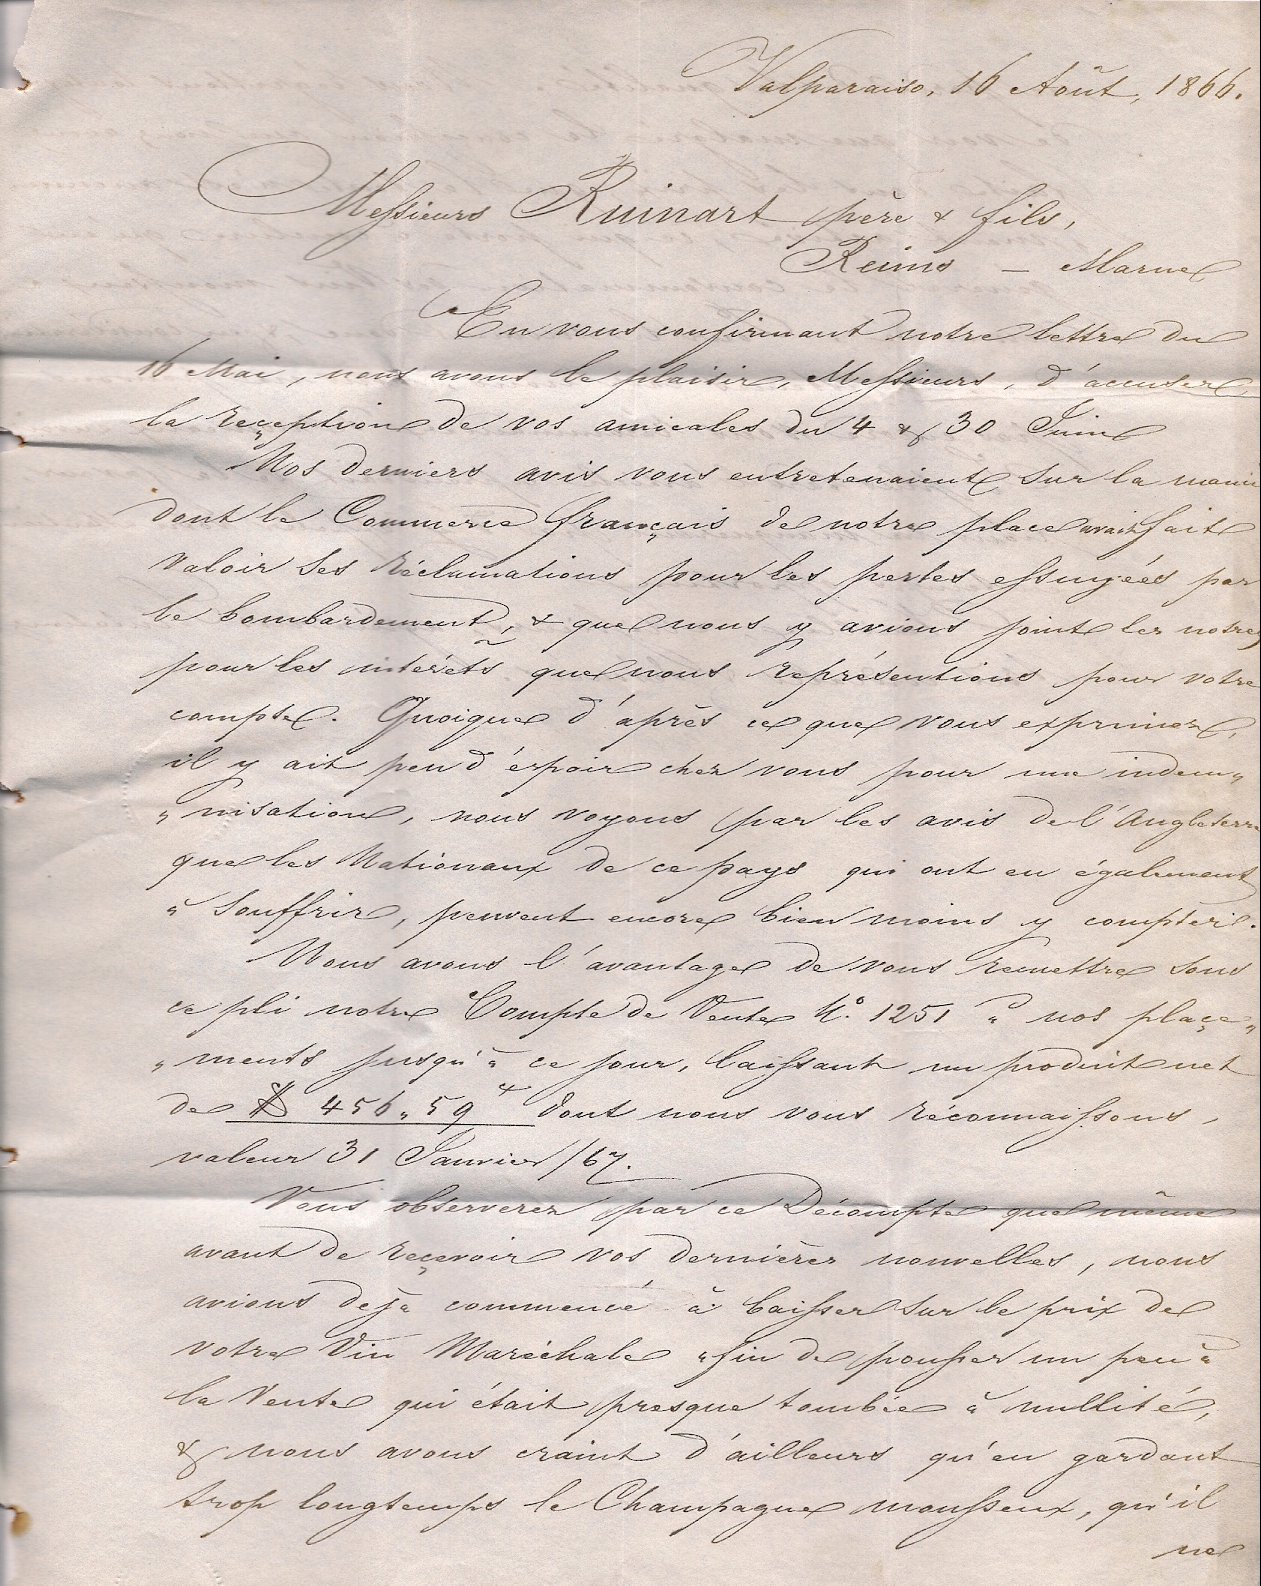 Valparaiso, 16 Août, 1866.
Messieurs Ruinart père & fils,
Reims — Marne
En vous confirmant notre lettre du
16 Mai, nous avons le plaisir, Messieurs, d'accuser
la reçeption de vos amicales du 4 & 30 Juin
Nos derniers avis vous entretenaient sur la manie
dont le Commerce français de notre place avait fait
valoir ses réclamations pour les pertes essuyées par
le bombardement, & que nous y avions joint les notres
pour les intérêts que nous représentions pour votre
compte. Quoique d'après ce que vous exprimez,
il y ait peu d'éspoir chez vous pour une indem„
„nisation, nous voyons par les avis de l'Angleterre
que les Nationaux de ce pays qui ont eu également
à souffrir, peuvent encore bien moins y compter.
Nous avons l'avantage de vous remettre sous
ce pli notre Compte de Vente No. 1251 à nos plaçe„
„ments jusqu'à ce jour, laissant un produit net
de $ 456„59 dont nous vous réconnaissons,
valeur 31 Janvier /67.
Vous observerez par ce Décompte que même
avant de reçevoir vos dernières nouvelles, nous
avions déjà commencé à baisser sur le prix de
votre Vin Maréchale afin de pousser un peu à
la Vente qui était presque tombée à nullité,
& nous avons craint d'ailleurs qu'en gardant
trop longtemps le Champagne mousseux, qu'il
ne